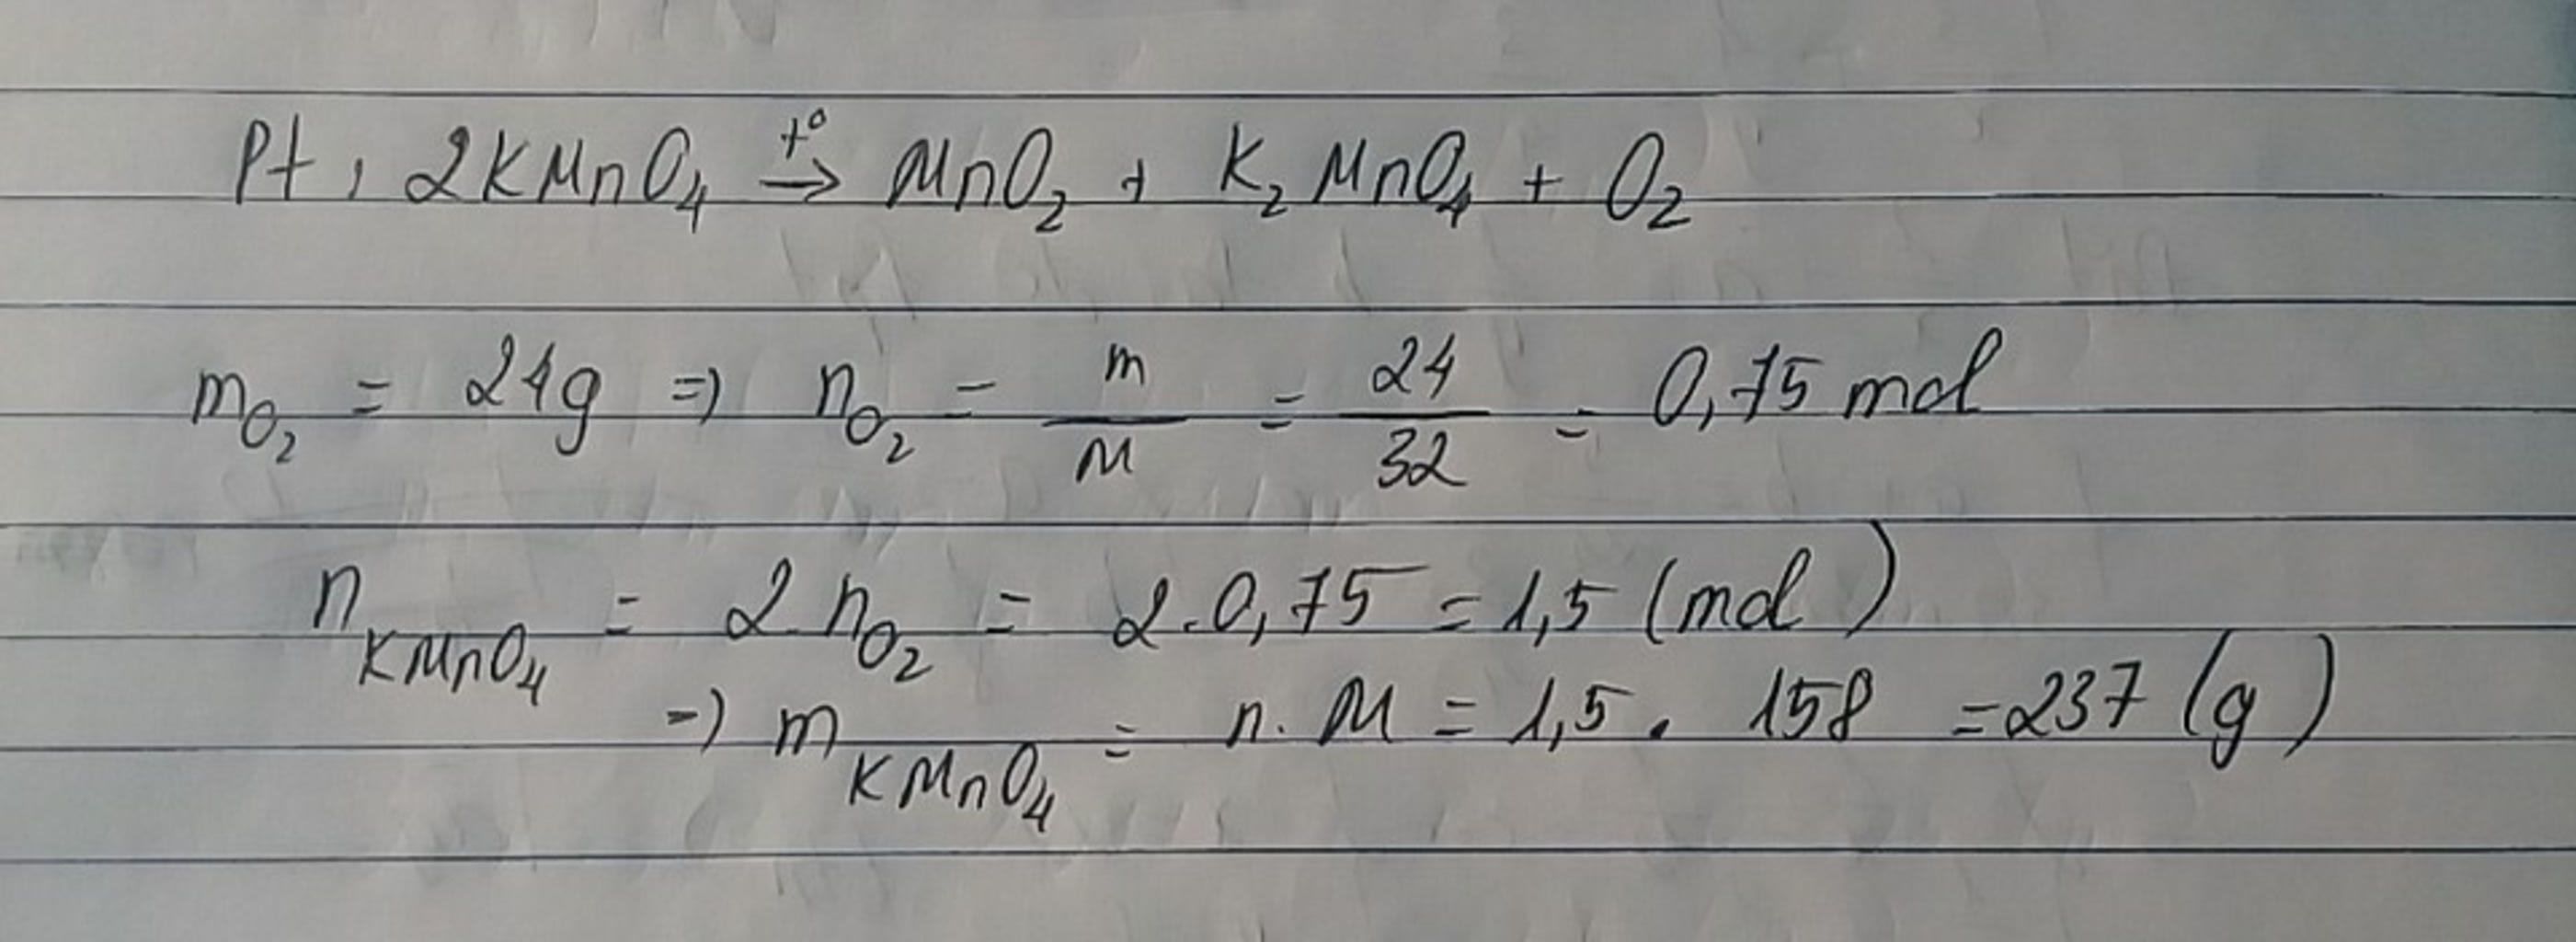 Pt, 2KMnO₄ →(t°) MnO₂ + K₂MnO₄ + O₂
m_O₂ = 24g => n_O₂ = m/M = 24/32 = 0,75 mol
n_KMnO₄ = 2 n_O₂ = 2.0,75 = 1,5 (mol)
=> m_KMnO₄ = n.M = 1,5 . 158 = 237 (g)